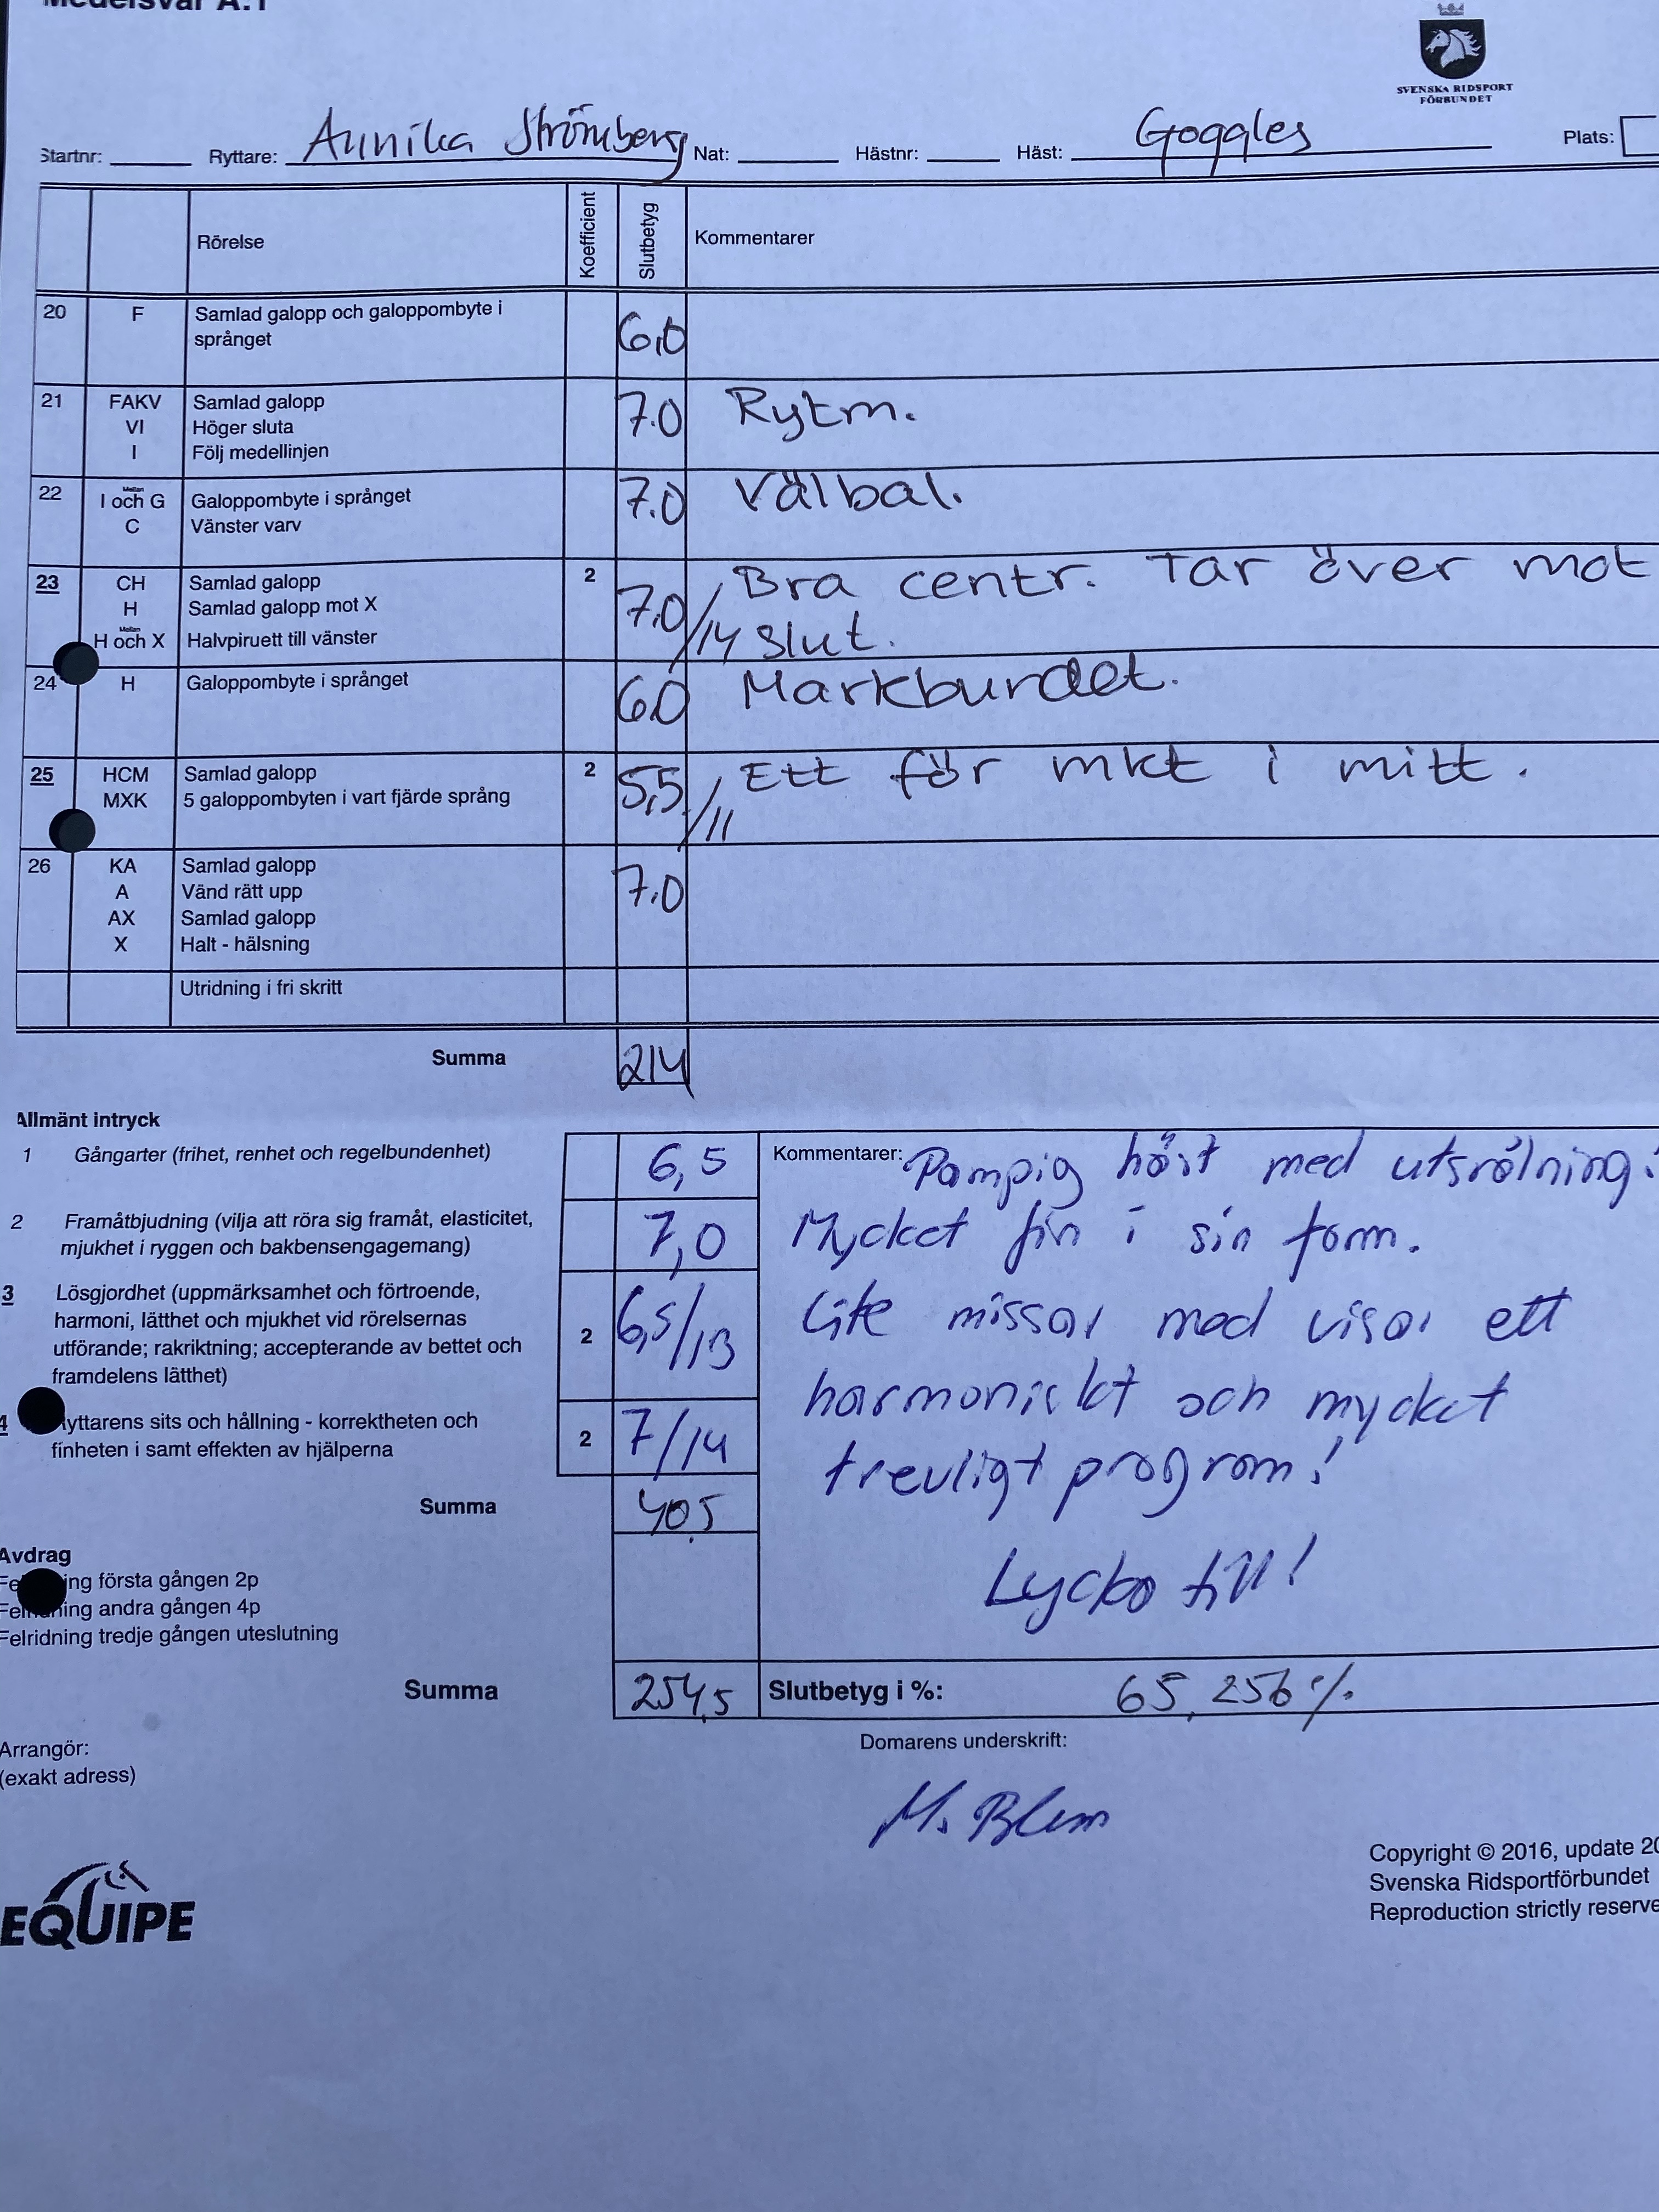 Medelsvår A:1
SVENSKA RIDSPORT
FÖRBUNDET
Startnr: Ryttare: Annika Strömberg Nat: Hästnr: Häst: Goggles Plats:
Rörelse Koefficient Slutbetyg Kommentarer
20 F Samlad galopp och galoppombyte i
språnget 6,0
21 FAKV Samlad galopp 7.0 Rytm.
VI Höger sluta
I Följ medellinjen
22 Mellan
I och G Galoppombyte i språnget 7.0 Välbal.
C Vänster varv
23 CH Samlad galopp 2 7.0/14 Bra centr. Tar över mot
H Samlad galopp mot X slut.
Mellan
H och X Halvpiruett till vänster
24 H Galoppombyte i språnget 6.0 Markbundet.
25 HCM Samlad galopp 2 5,5/11 Ett för mkt i mitt.
MXK 5 galoppombyten i vart fjärde språng
26 KA Samlad galopp 7.0
A Vänd rätt upp
AX Samlad galopp
X Halt - hälsning
Utridning i fri skritt
Summa 214
Allmänt intryck
1 Gångarter (frihet, renhet och regelbundenhet) 6,5
2 Framåtbjudning (vilja att röra sig framåt, elasticitet,
mjukhet i ryggen och bakbensengagemang) 7,0
3 Lösgjordhet (uppmärksamhet och förtroende,
harmoni, lätthet och mjukhet vid rörelsernas
utförande; rakriktning; accepterande av bettet och
framdelens lätthet) 2 6,5/13
4 yttarens sits och hållning - korrektheten och
finheten i samt effekten av hjälperna 2 7/14
Kommentarer: Pampig häst med utsrålning!
Mycket fin i sin form.
Lite missar med visar ett
harmoniskt och mycket
trevligt program!
Lycka till!
Summa 40,5
Avdrag
Fe ing första gången 2p
Felridning andra gången 4p
Felridning tredje gången uteslutning
Summa 254,5 Slutbetyg i %: 65,256 %
Arrangör:
(exakt adress)
Domarens underskrift:
M. Blem
EQUIPE
Copyright © 2016, update 20
Svenska Ridsportförbundet
Reproduction strictly reserve